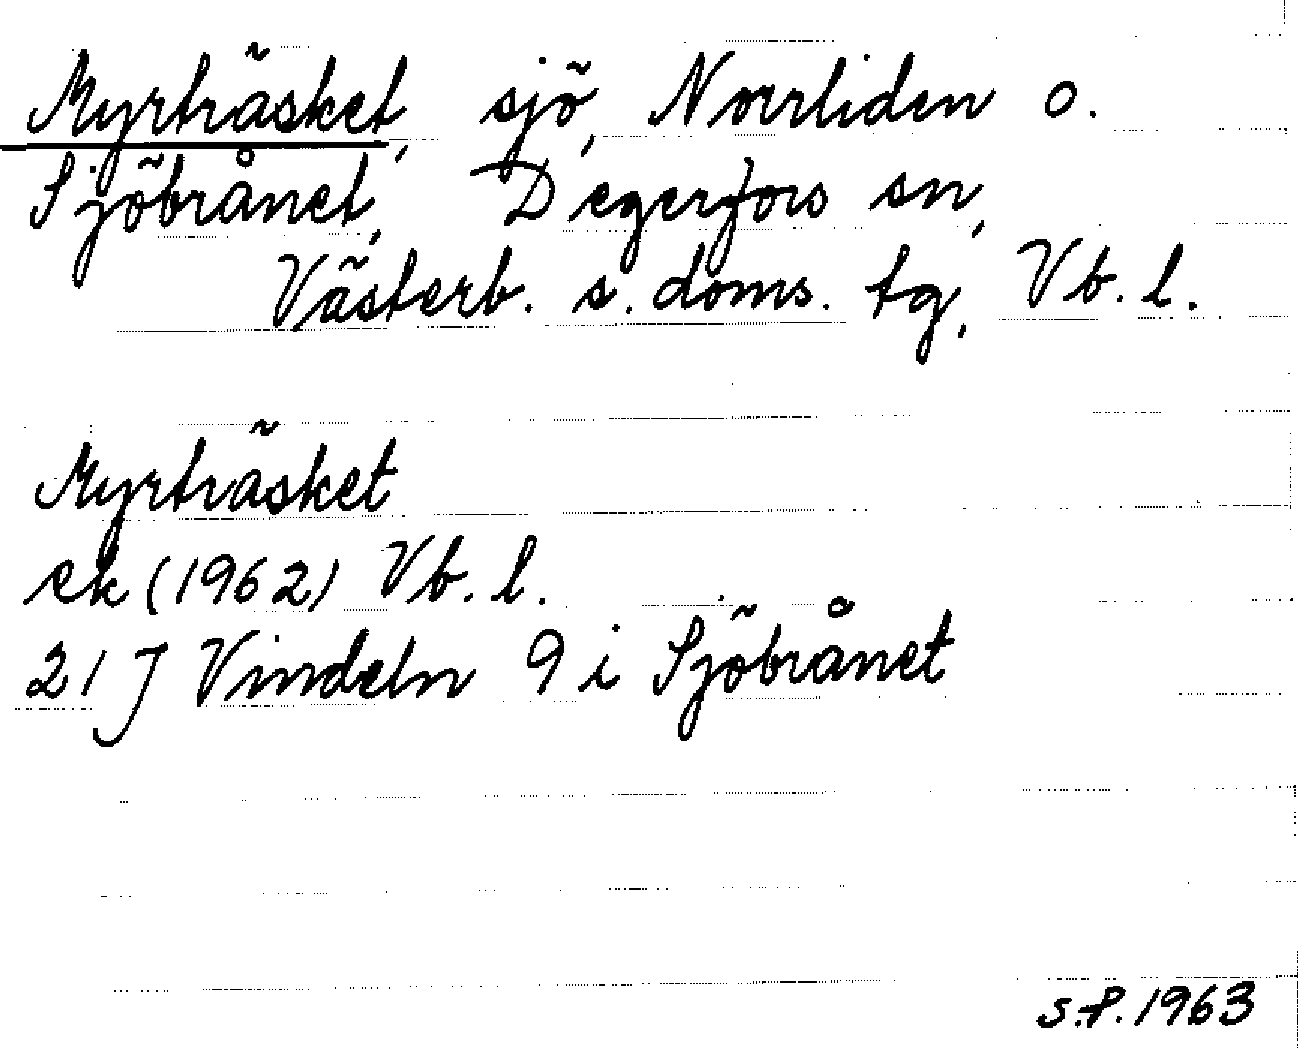 Myrträsket, sjö, Norrliden o.
Sjöbrånet, Degerfors sn,
Västerb. s. doms. tg, Vb. l.
Myrträsket
ek (1962) Vb. l.
21 J Vindeln 9 i Sjöbrånet
S.P. 1963